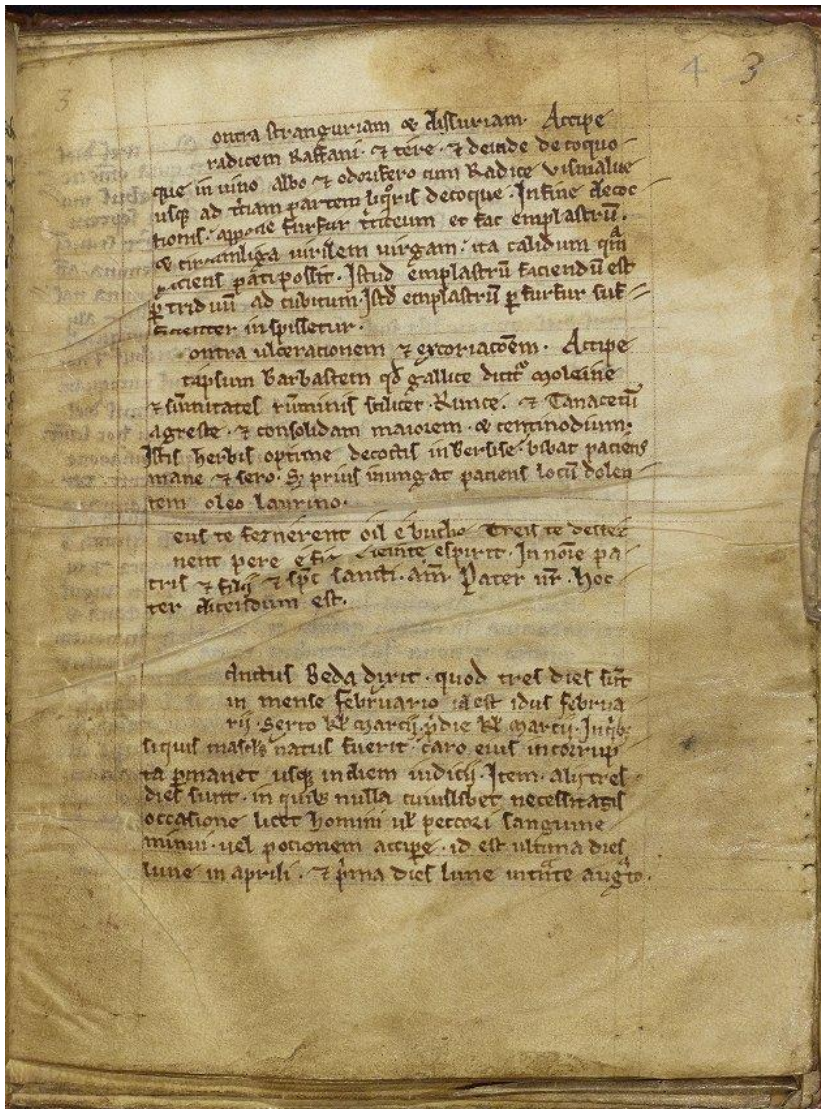 4 3
3
ontra stranguriam & dissuriam. Accipe
radicem Raffani. ⁊ tere. ⁊ deinde decoquo
que in uino albo ⁊ odorifero cum Radice uismalue
usq; ad t̃ciam partem liq̃ris decoque. In fine decoc
tionis. appone furfur t̃ticeum et fac emplastrũ.
& circumliga uirilem uirgam. ita calidum
paciens pati possit. Istud emplastrũ faciendũ est
p̱ triduũ ad cubitum. Istđ emplastrũ p̱ furfur suf
ficienter inspissetur.
ontra ulcerationem ⁊ excoriacõem. Accipe
tapsum barbastem qđ gallice moleine
⁊ sũmitates scilicet Runce. ⁊ Tanacetũ
agreste. ⁊ consolidam maiorem. & centinodium.
Istis herbis optime decoctis bibat paciens
mane ⁊ sero. S; prius inungat paciens locũ dolen
tem oleo laurino.
eus te oil e buche Treis te
nent pere e fiz espirit. In noĩe pa
tris ⁊ filij ⁊ sp̃c sancti. am̃. Pater nr̃. hoc
ter dicendum est.
Beda dixit. quod tres dies sũt
in mense februario id est idus februa
rij. Sexto kl̃ marcij. p̃die kl̃ marcij. In q̃ib;
siquis natus fuerit. caro eius incorrup
ta p̱manet usq; in diem iudicij. Item. alij tres
dies sunt. in quib; nulla cuiuslibet necessitatis
occasione licet homini ul̃ peccori sanguine
minui. uel potionem accipe. id est ultima dies
lune in aprili. ⁊ p̃ma dies lune